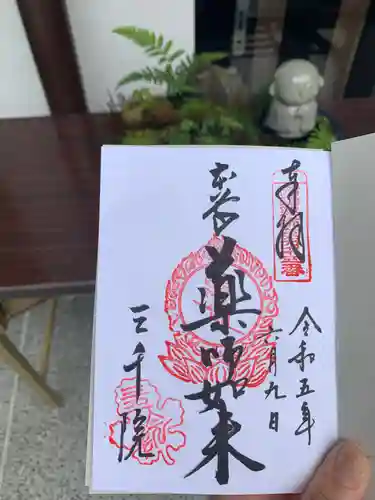 奉拝
令和五年
六月九日
薬師如来
三千院